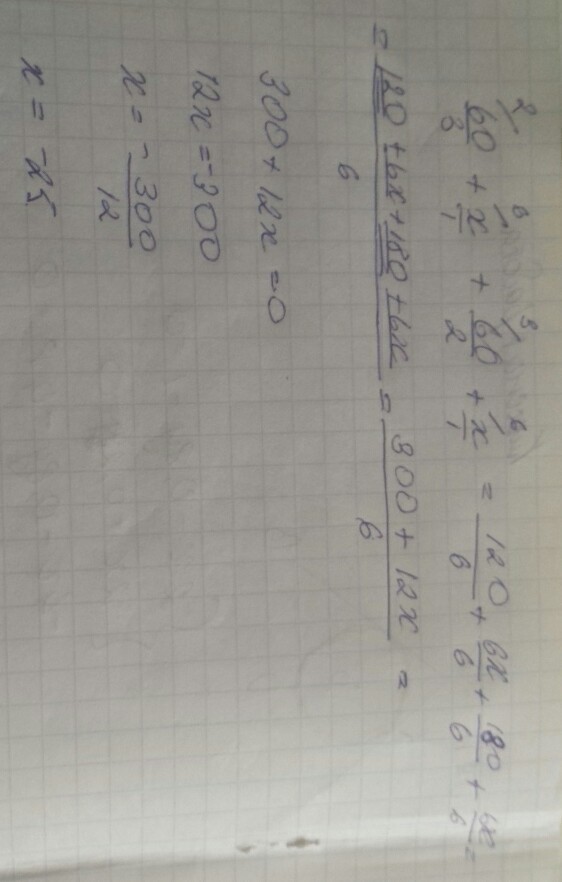 2/ 6/ 3/ 6/
60/3 + x/1 + 60/2 + x/1 = 120/6 + 6x/6 + 180/6 + 6x/6 =
= (120 + 6x + 180 + 6x)/6 = (300 + 12x)/6 =
300 + 12x = 0
12x = -300
x = - 300/12
x = -25